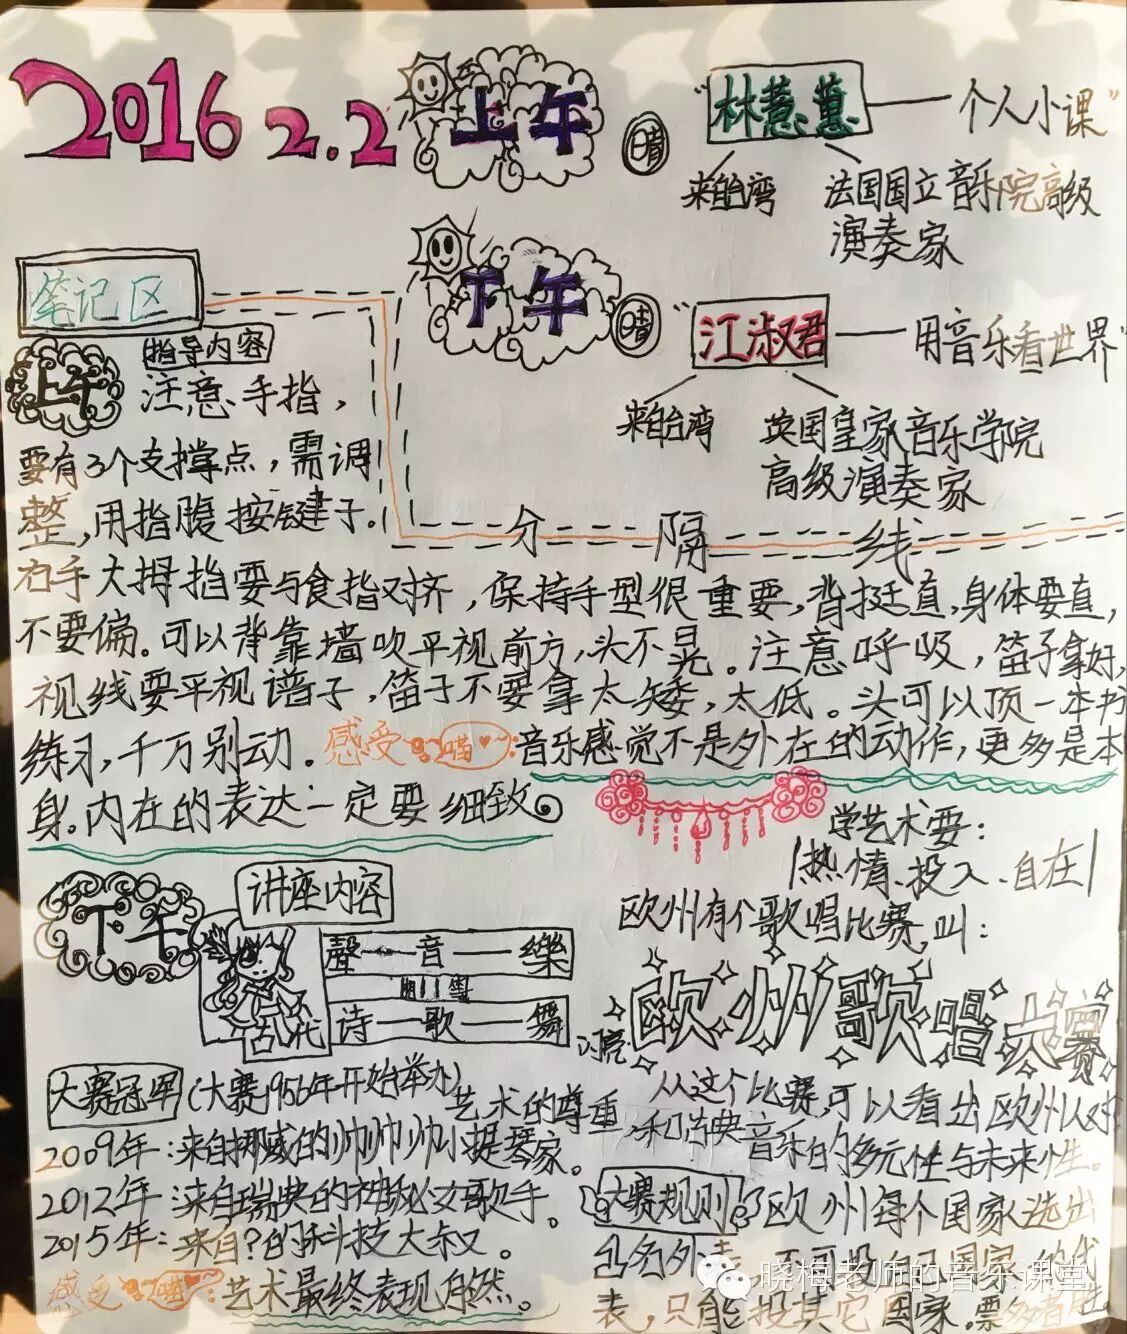 2016 2.2
上午
晴
"林慧蕙——个人小课"
来自台湾
法国国立音乐院高级
演奏家
下午
晴
"江淑君——用音乐看世界"
来自台湾
英国皇家音乐学院
高级演奏家
分隔线
笔记区
上午
指导内容
注意手指，
要有3个支撑点，需调
整，用指腹按键子。
右手大拇指要与食指对挤，保持手型很重要，背挺直，身体要直，
不要偏。可以背靠墙吹平视前方，头不晃。注意呼吸，笛子拿好，
视线要平视谱子，笛子不要拿太矮，太低。头可以顶一本书
练习，千万别动。感受 喵：音乐感觉不是外在的动作，更多是本
身。内在的表达一定要细致。
学艺术要：
热情、投入、自在
下午
讲座内容
聲——音——樂
诗——歌——舞
古代
欧州有个歌唱比赛，叫：
欧州歌唱大赛
从这个比赛，可以看出欧州人对
艺术的尊重，和古典音乐的多元性与未来性。
大赛冠军（大赛1956年开始举办）
2009年：来自挪威的帅帅帅小提琴家。
2012年：来自瑞典的神秘女歌手。
2015年：来自?的科技大叔。
感受 喵：艺术最终表现自然。
大赛规则：欧州每个国家选出
表，只能投其它国家。票多者胜。
晓梅老师的音乐课堂